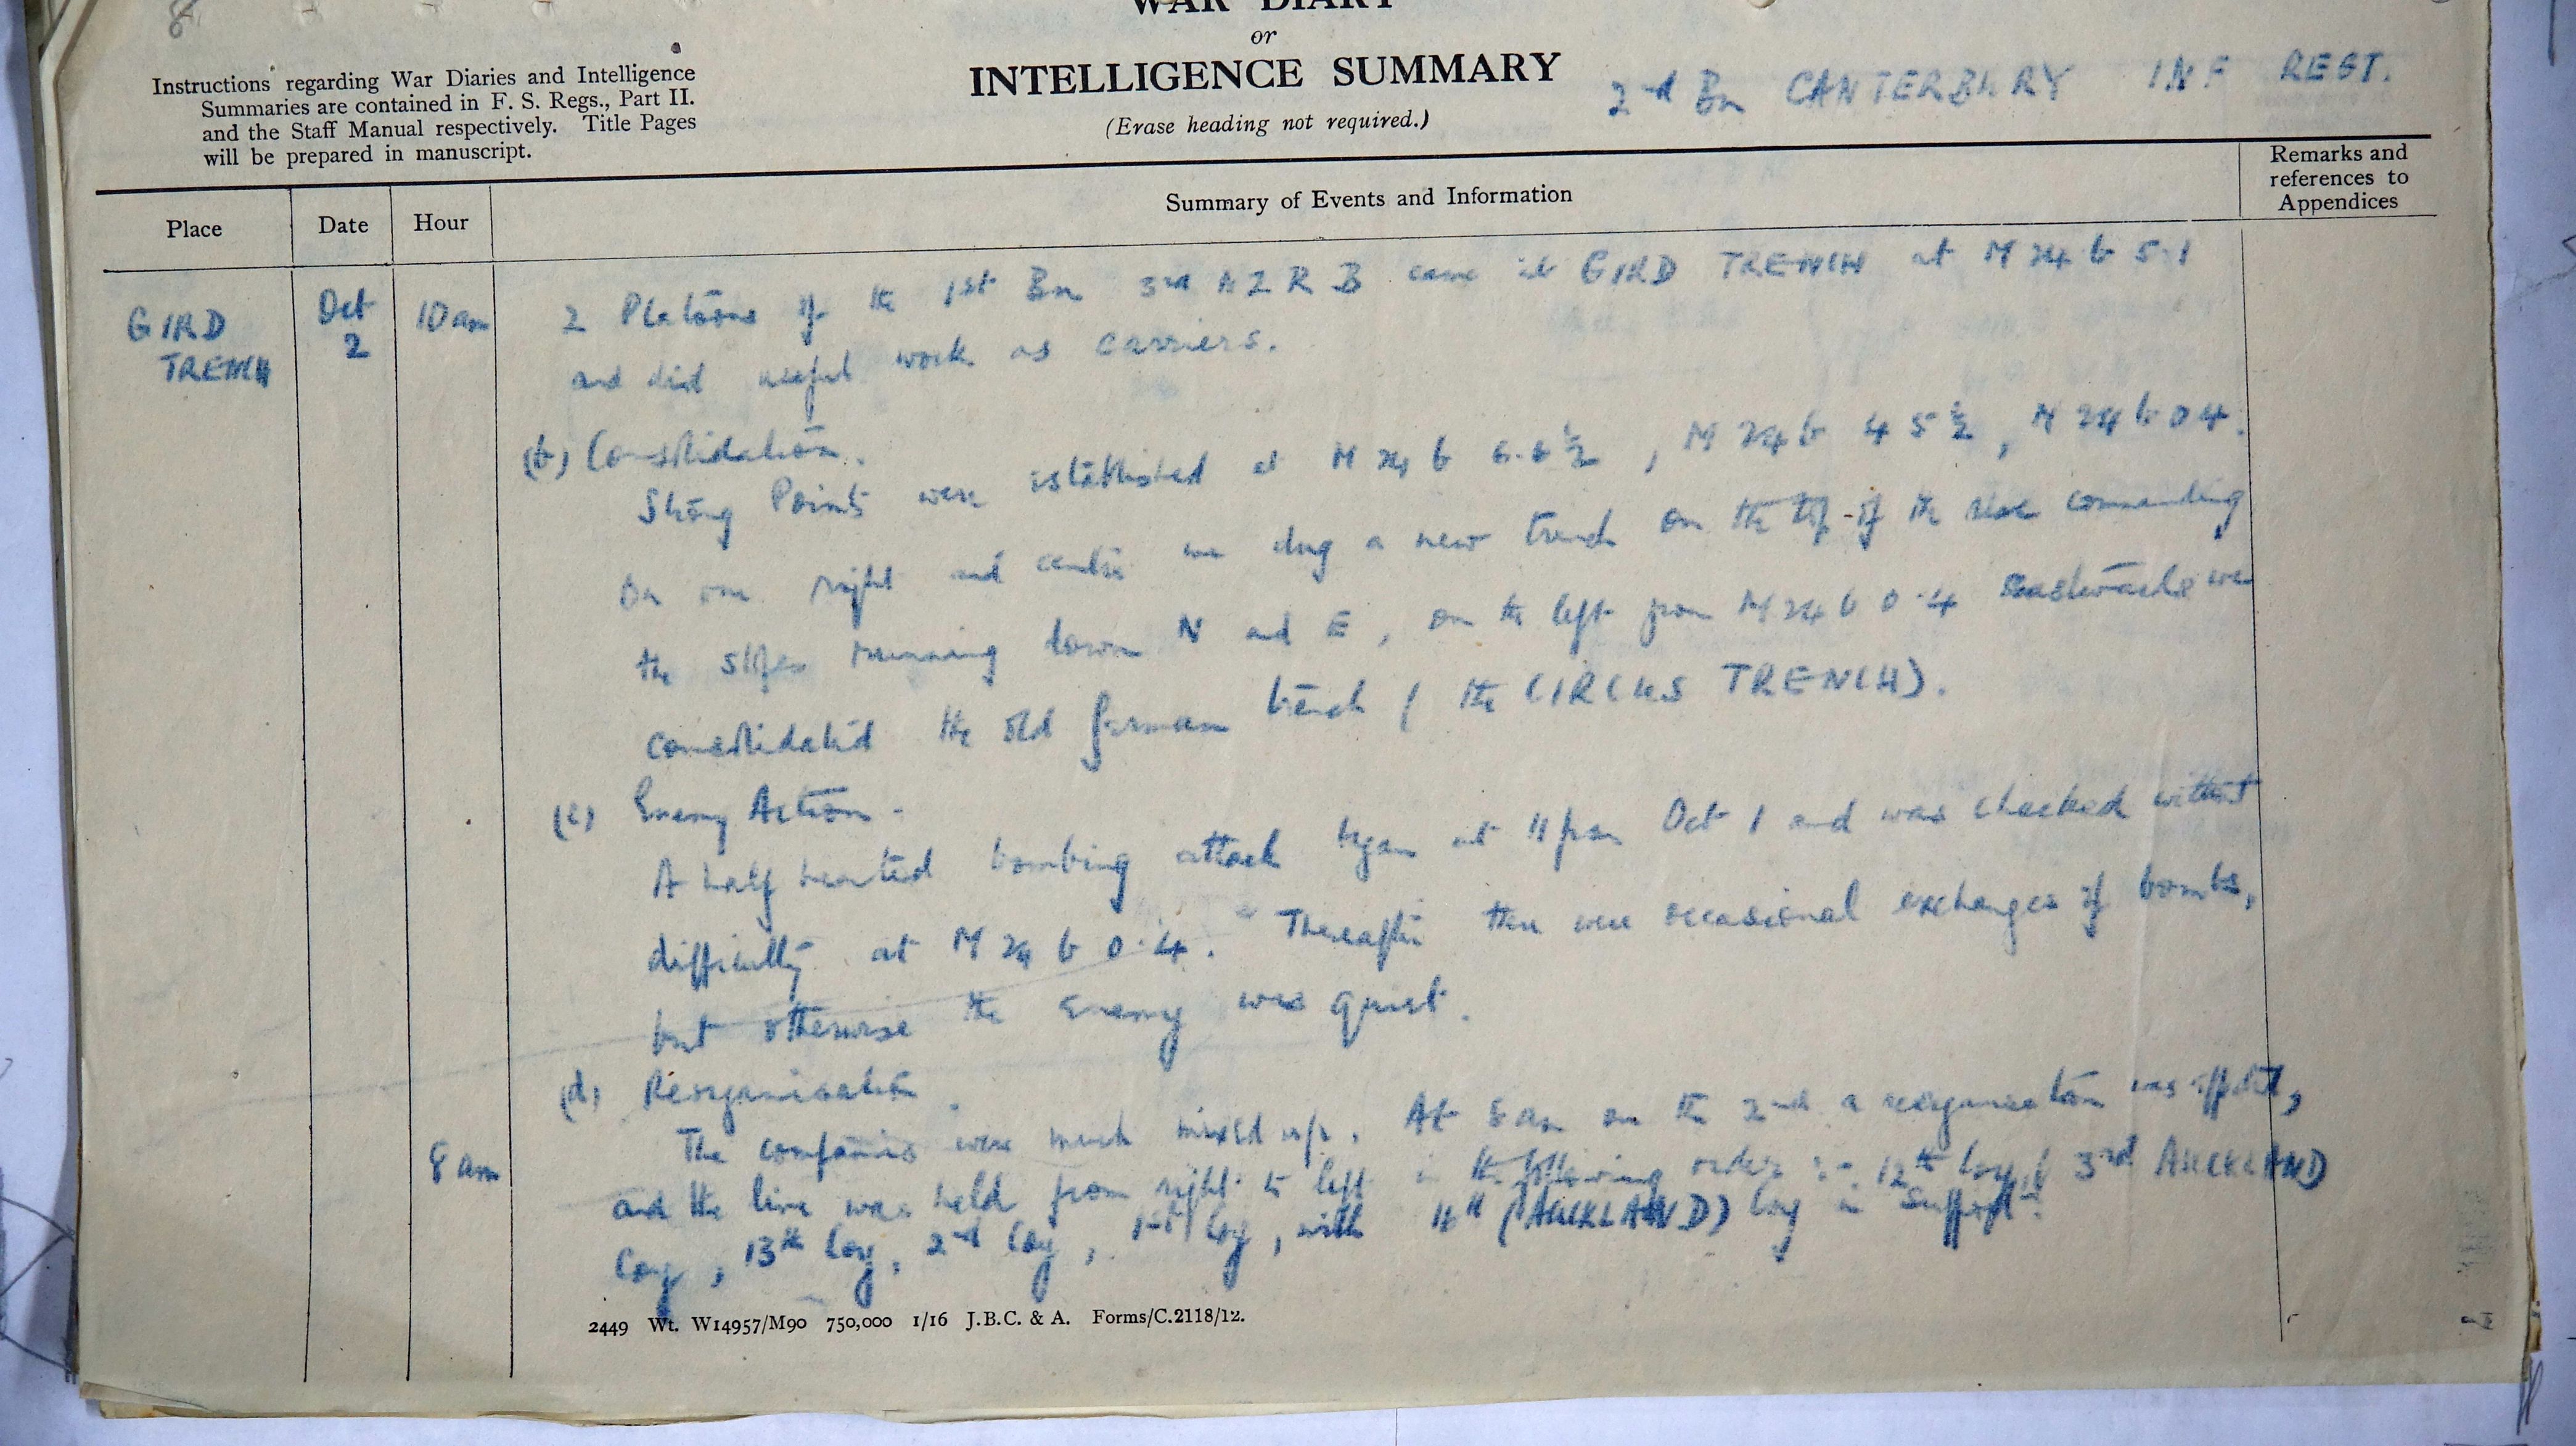 8
WAR DIARY
or
INTELLIGENCE SUMMARY
(Erase heading not required.)
2nd Bn CANTERBURY INF REGT.
Instructions regarding War Diaries and Intelligence
Summaries are contained in F. S. Regs., Part II.
and the Staff Manual respectively. Title Pages
will be prepared in manuscript.
Place
Date
Hour
Summary of Events and Information
Remarks and
references to
Appendices
GIRD
TRENCH
Oct
2
10 am
2 Platoons of the 1st Bn 3rd N Z R B came into GIRD TRENCH at M 24 b 5.1
and did useful work as carriers.
(b) Consolidation.
Strong Points were established at M 24 b 6.6½, M 24 b 4 5½, M 24 b 0 4.
On our right and centre we dug a new trench on the top of the rise commanding
the slopes running down N and E, on the left from M 24 b 0.4 we
consolidated the old German trench (the CIRCUS TRENCH).
(c) Enemy Action.
A half hearted bombing attack began at 11 pm Oct 1 and was checked without
difficulty at M 24 b 0.4. Thereafter there were occasional exchanges of bombs,
but otherwise the Enemy was quiet.
(d) Reorganisation.
8 am
The companies were much mixed up. At 8 am on the 2nd a reorganisation was effected,
and the line was held from right to left in the following order :- 12th Coy, 3rd AUCKLAND
Coy, 13th Coy, 2nd Coy, 1st Coy, with (AUCKLAND) Coy in Support.
2449 Wt. W14957/M90 750,000 1/16 J.B.C. & A. Forms/C.2118/12.